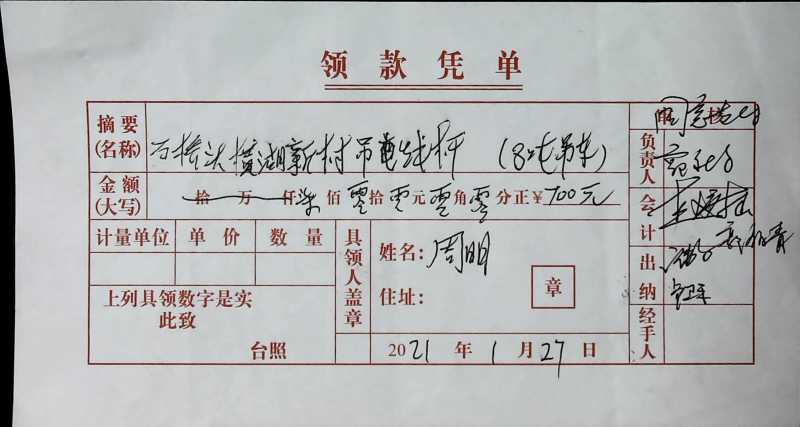 领款凭单
摘要(名称) 石桥头横湖新村吊电线杆 (8吨吊车)
金额(大写) 拾 万 仟 柒 佰 零 拾 零 元 零 角 零 分正¥ 700元
计量单位 单价 数量
具领人盖章
姓名: 周明
住址:
章
上列具领数字是实
此致
台照
2021 年 1 月 27 日
负责人
会计
出纳
经手人